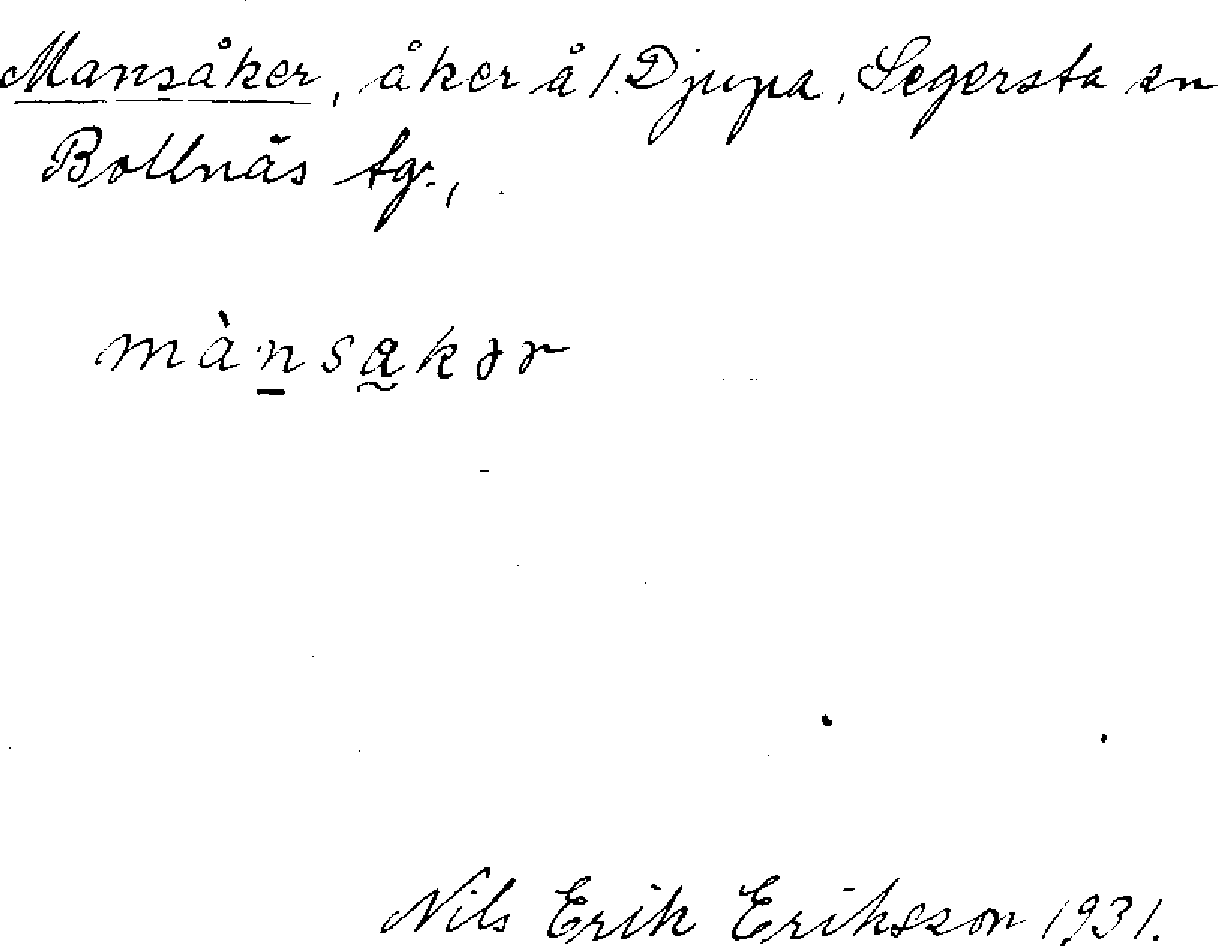 Mansåker, åker å 1 Djupa, Segersta sn
Bollnäs tg.,
mànsakər
Nils Erik Eriksson 1931.